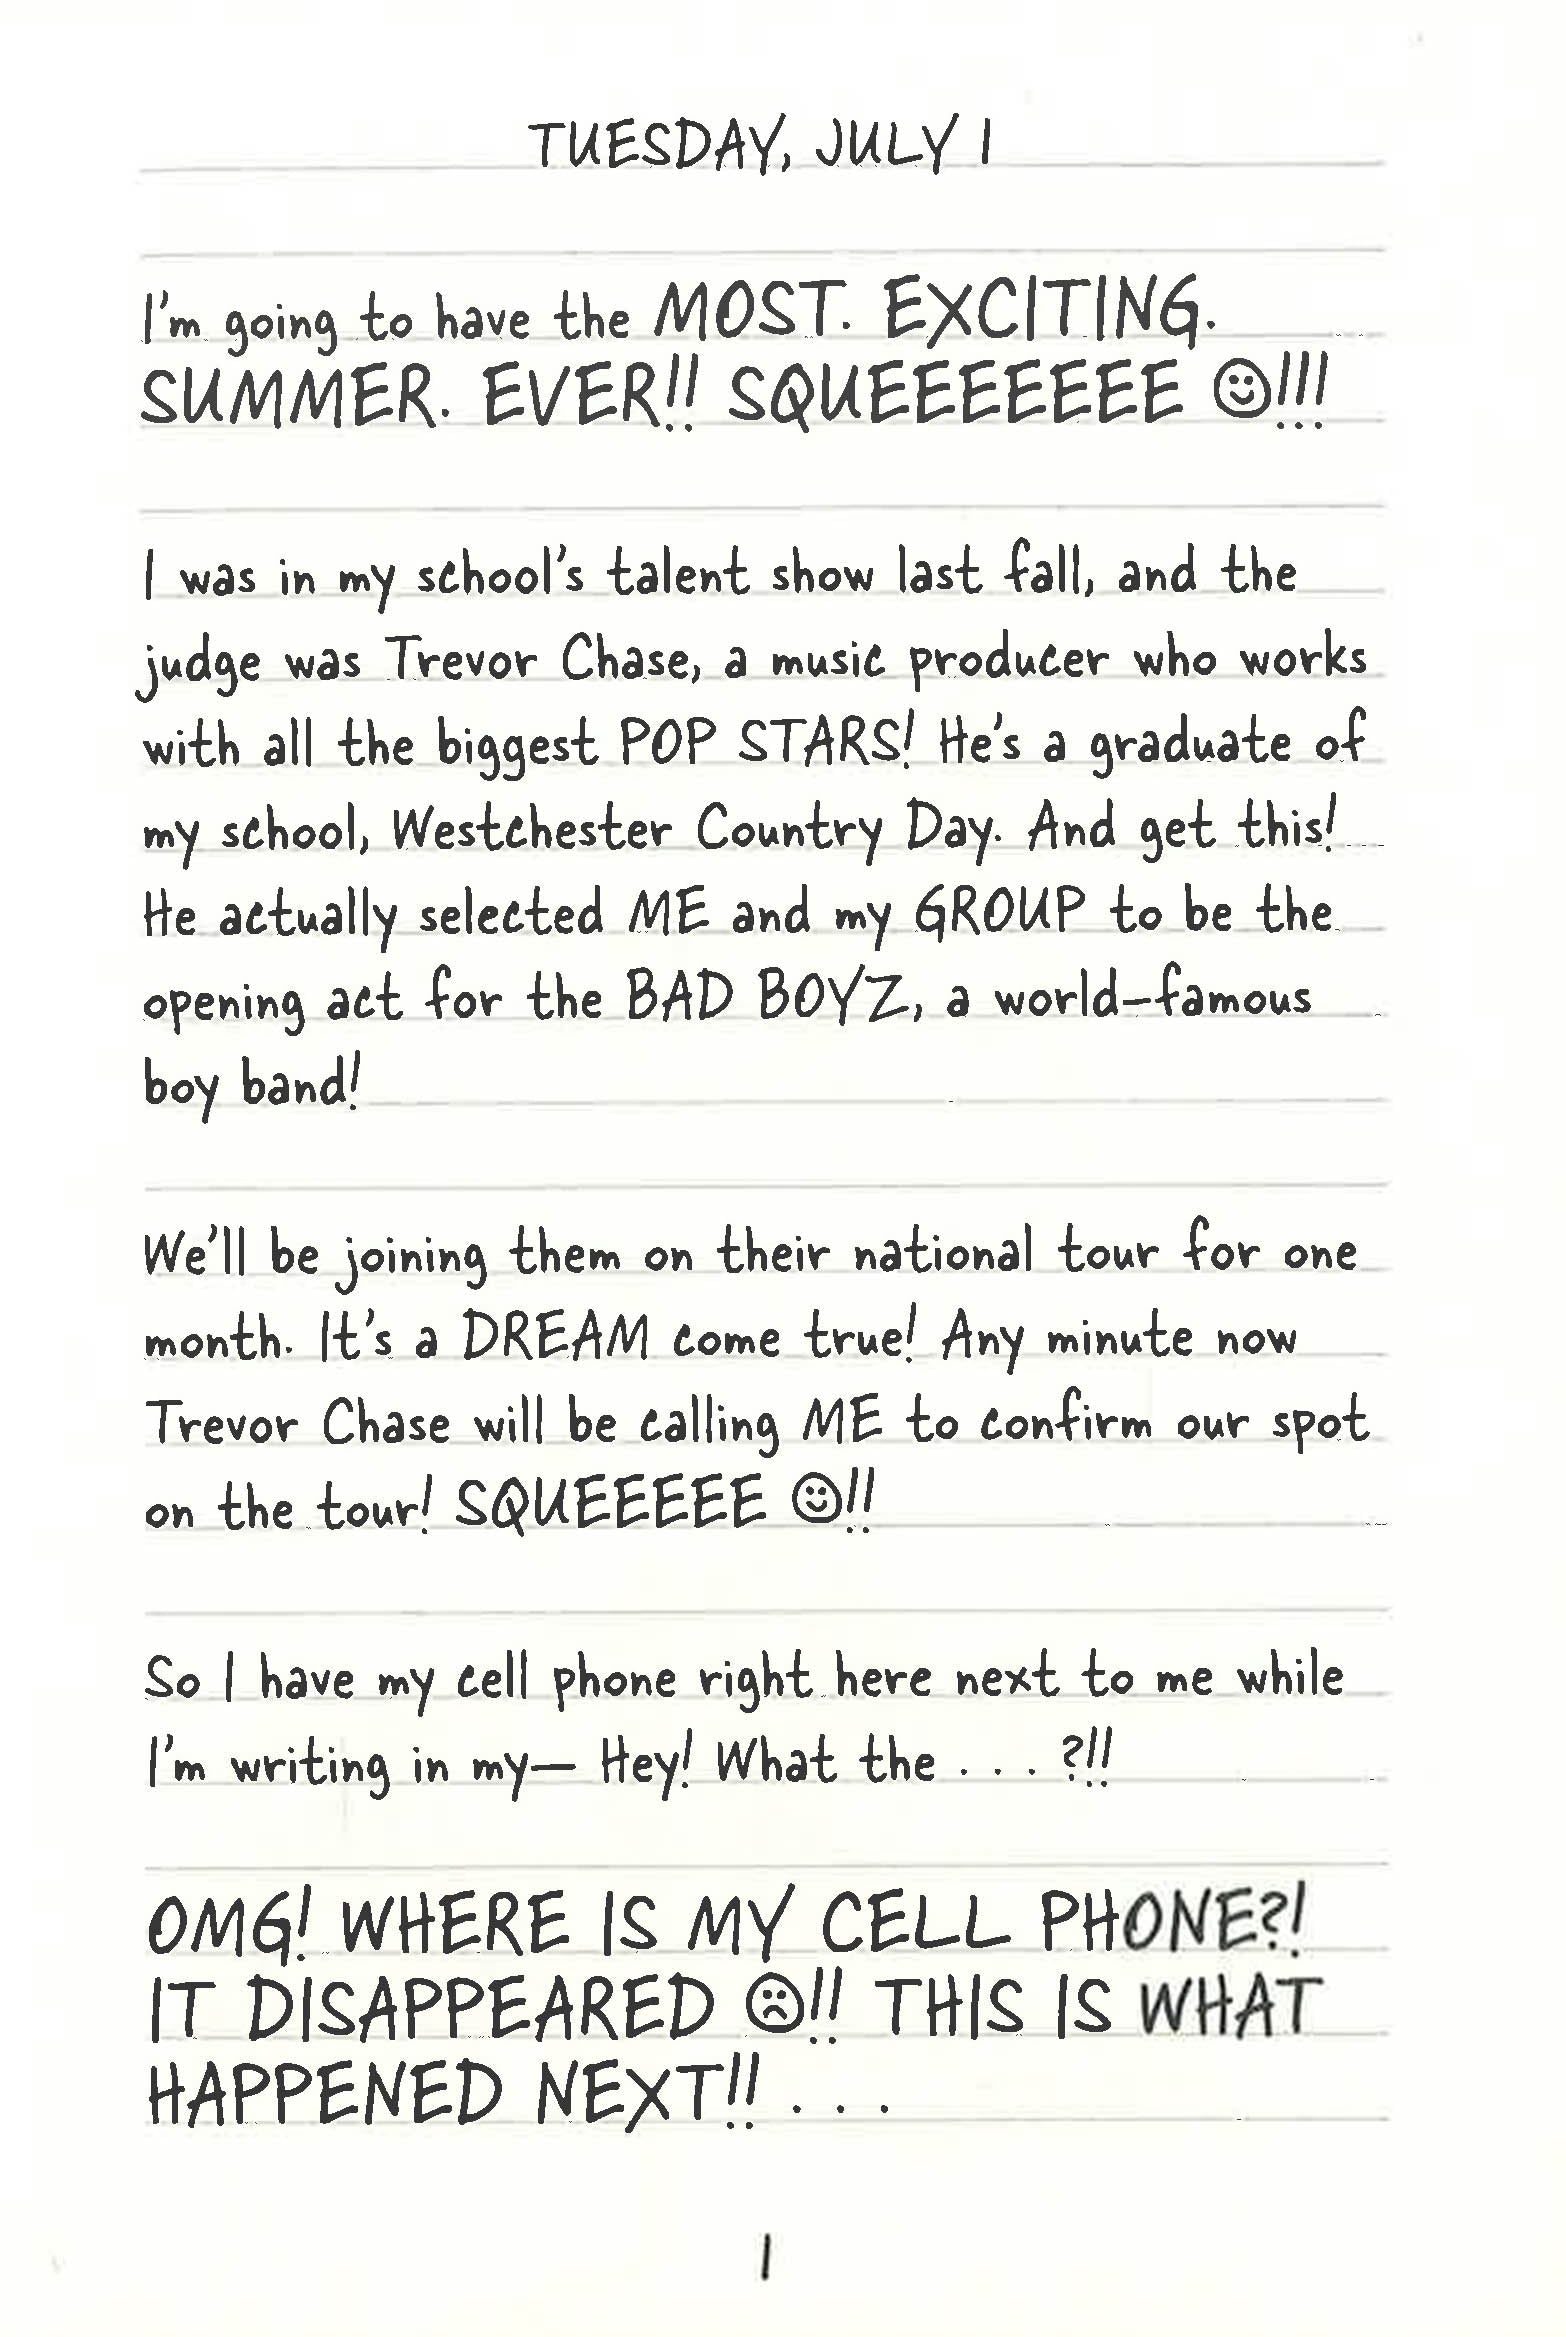 TUESDAY, JULY 1
I'm going to have the MOST. EXCITING.
SUMMER. EVER!! SQUEEEEEEE ☺!!!
I was in my school's talent show last fall, and the
judge was Trevor Chase, a music producer who works
with all the biggest POP STARS! He's a graduate of
my school, Westchester Country Day. And get this!
He actually selected ME and my GROUP to be the
opening act for the BAD BOYZ, a world–famous
boy band!
We'll be joining them on their national tour for one
month. It's a DREAM come true! Any minute now
Trevor Chase will be calling ME to confirm our spot
on the tour! SQUEEEEE ☺!!
So I have my cell phone right here next to me while
I'm writing in my— Hey! What the . . . ?!!
OMG! WHERE IS MY CELL PHONE?!
IT DISAPPEARED ☹!! THIS IS WHAT
HAPPENED NEXT!! . . .
1